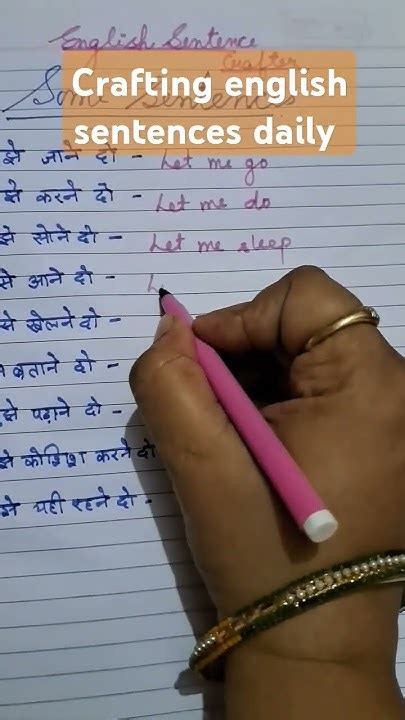 English Sentence
Crafter
Crafting english
sentences daily
Some Sentences
झे जाने दो - Let me go
झे करने दो - Let me do
झे सोने दो - Let me sleep
से आने दो - L
से खेलने दो -
बताने दो -
झे पढ़ाने दो -
झे कोशिश करने दो
झे यही रहने दो -